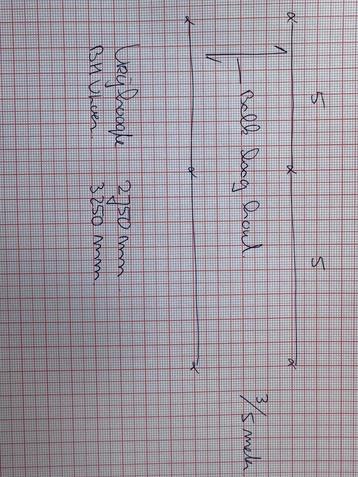 5 5
Balk laag hout
3/5 meter
Vrijhoogte 2750 mm
BK vloer 3250 mm